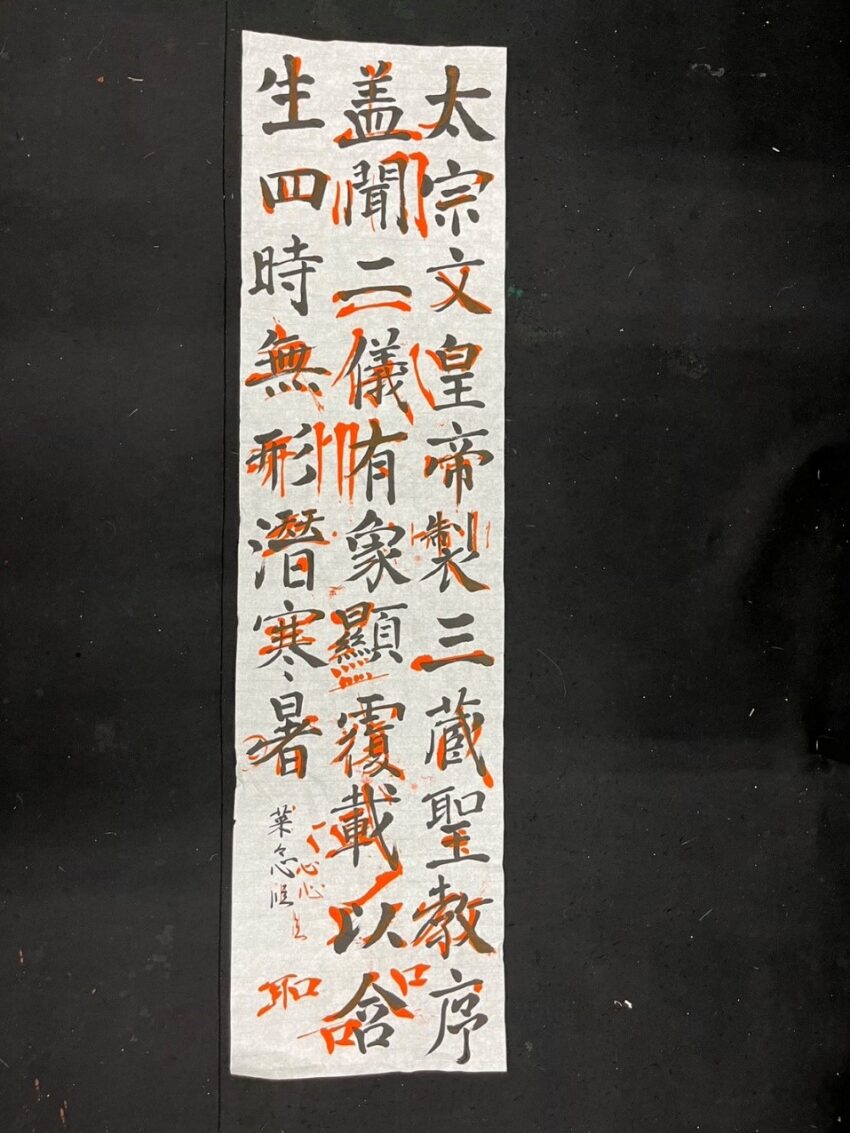 太宗文皇帝製三蔵聖教序
盖聞二儀有象顯覆載以含
生四時無形潛寒暑